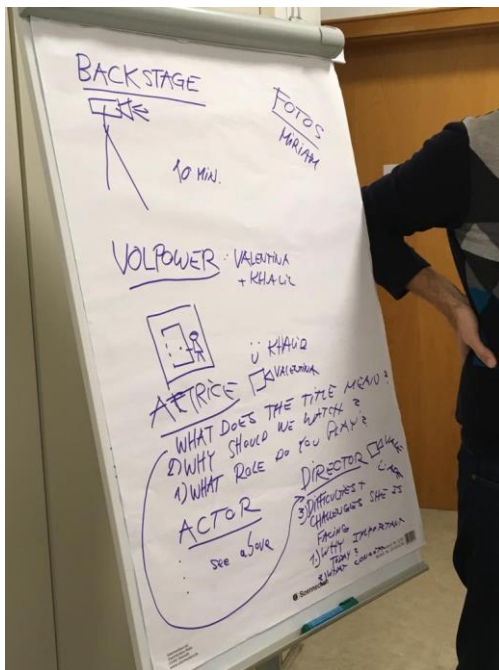 BACKSTAGE
FOTOS
MIRIAM
10 MIN.
VOLPOWER: VALENTINA
+ KHALIL
KHALIQ
ATTRICE VALENTINA
WHAT DOES THE TITLE MEAN?
2) WHY SHOULD WE WATCH?
1) WHAT ROLE DO YOU PLAY?
ACTOR
see above
DIRECTOR
3) DIFFICULTEST
CHALLENGES SHE IS
FACING
1.) WHY IMPORTANT
TODAY?
2) WHAT
Soennecken